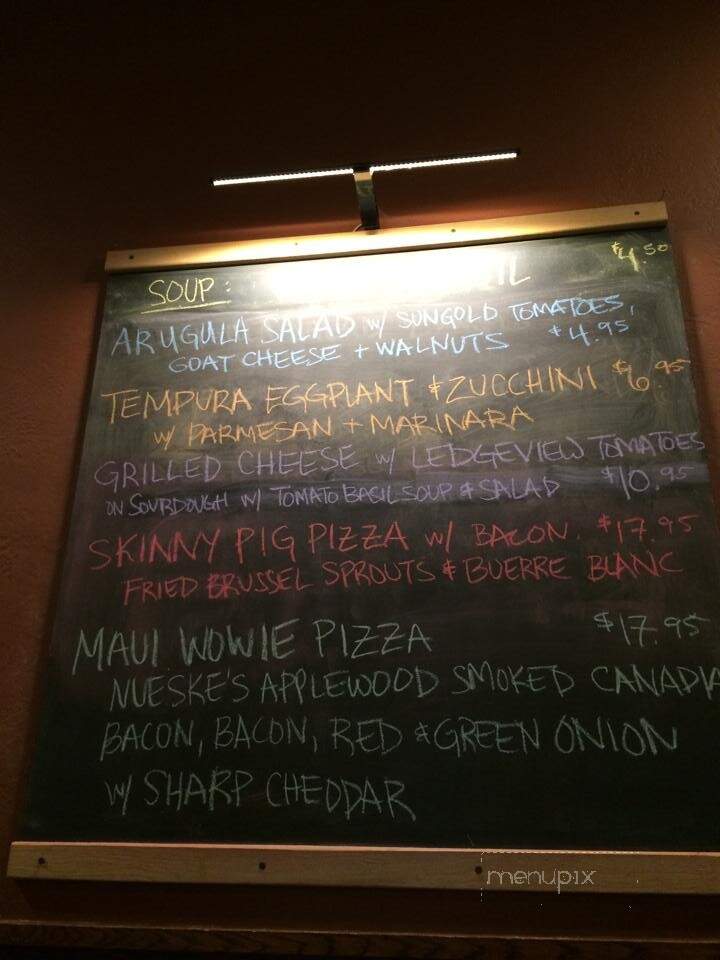 SOUP: $4.50
ARUGULA SALAD w/ SUNGOLD TOMATOES,
GOAT CHEESE + WALNUTS $4.95
TEMPURA EGGPLANT & ZUCCHINI $6.95
w/ PARMESAN + MARINARA
GRILLED CHEESE w/ LEDGEVIEW TOMATOES
ON SOURDOUGH W/ TOMATO BASIL SOUP & SALAD $10.95
SKINNY PIG PIZZA w/ BACON, $17.95
FRIED BRUSSEL SPROUTS & BUERRE BLANC
MAUI WOWIE PIZZA $17.95
NUESKE'S APPLEWOOD SMOKED CANADIA
BACON, BACON, RED & GREEN ONION
w/ SHARP CHEDDAR
menupix